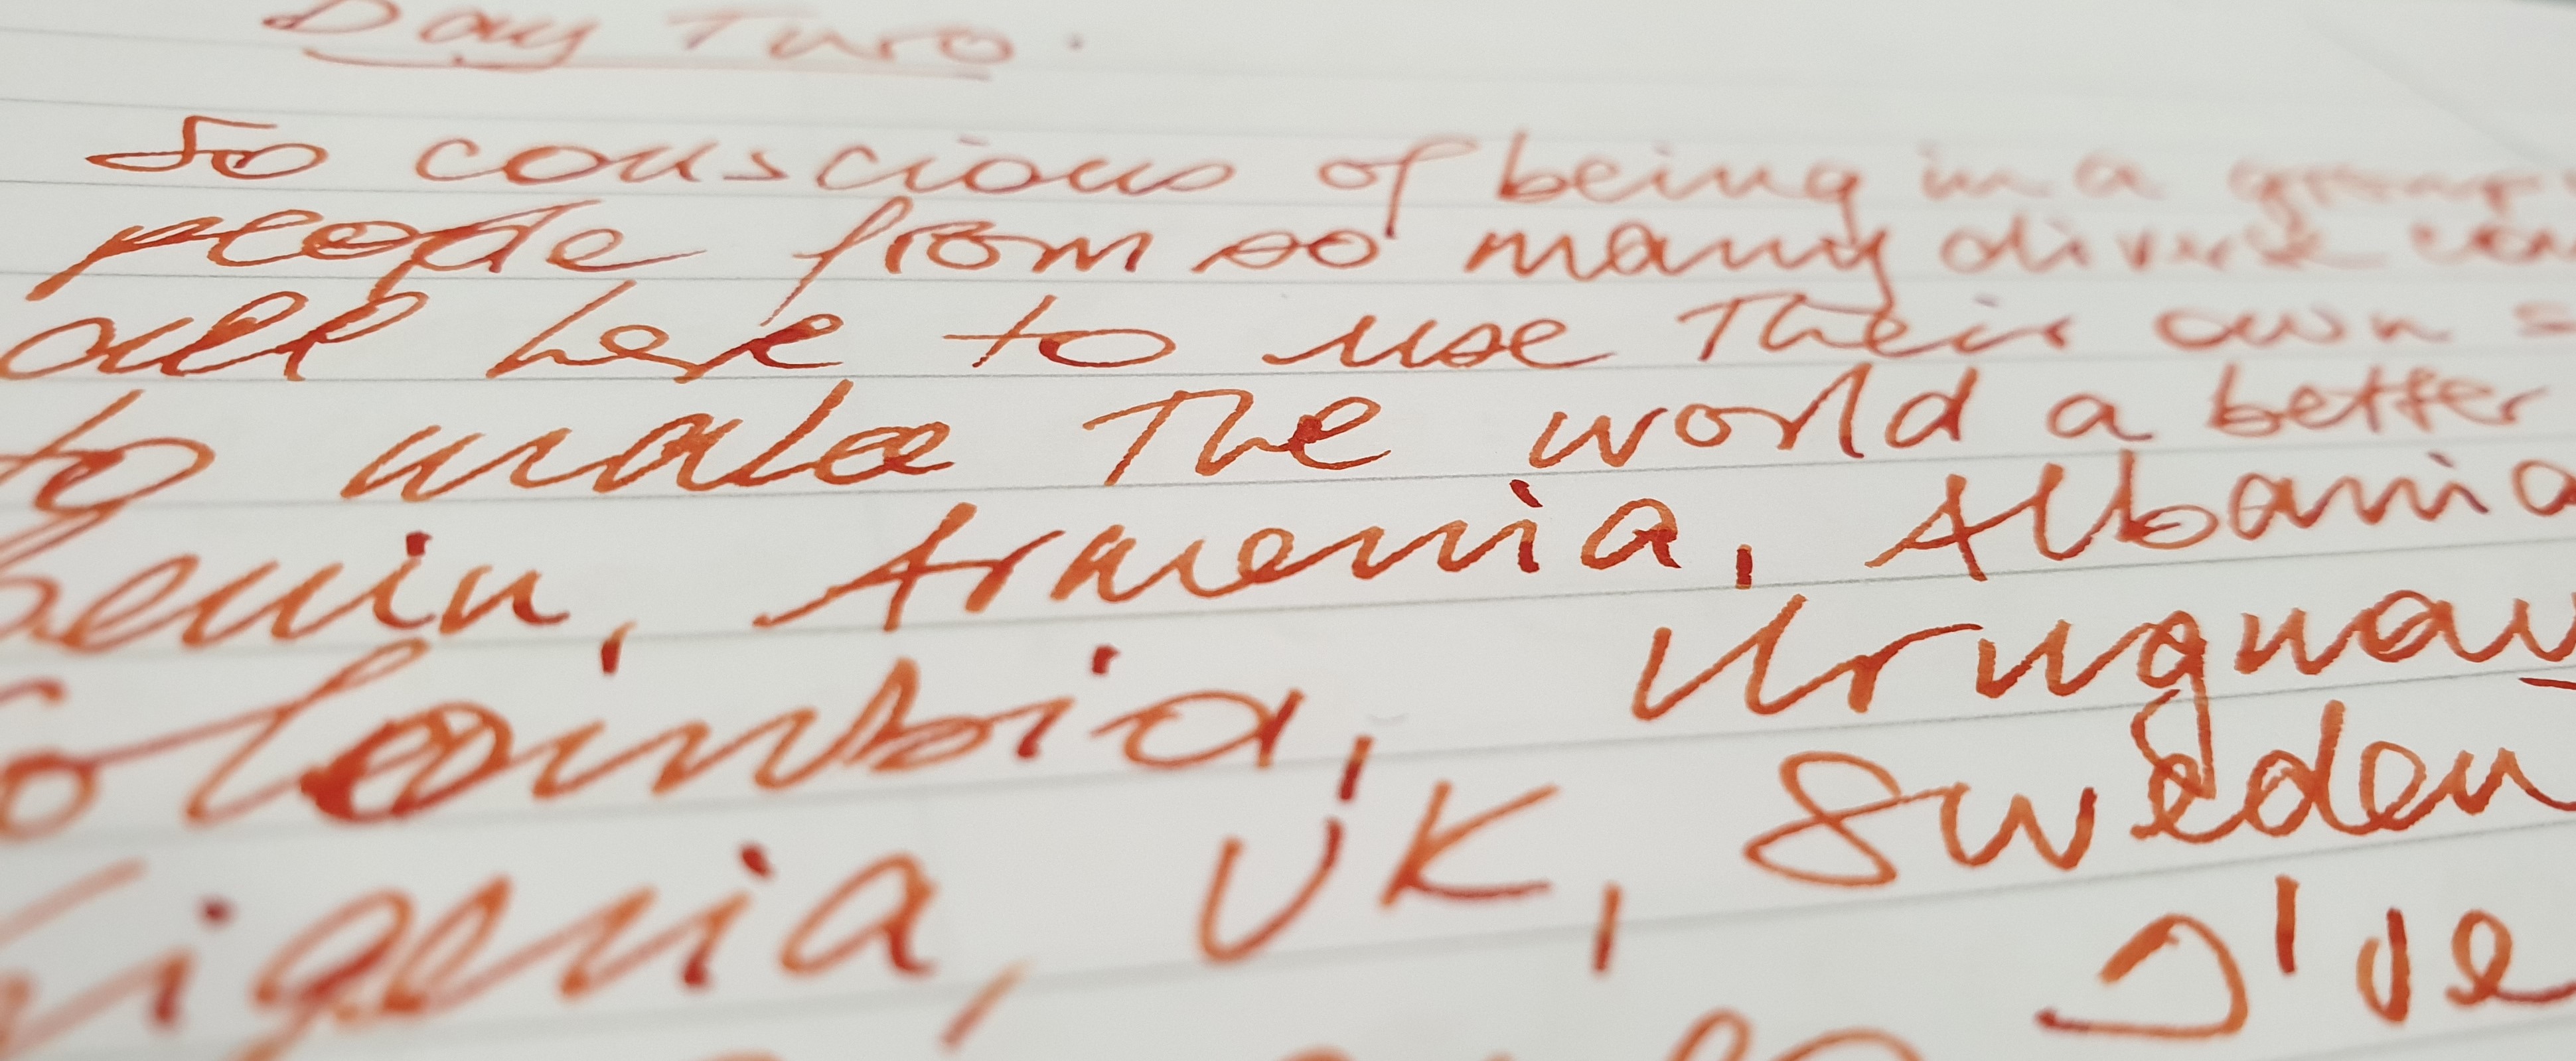 Day Two.
So conscious of being in a group
people from so many diverse
all here to use their own
to make The world a better
Benin, Armenia, Albania
Colombia, Uruguay
Nigeria, UK, Sweden
I've